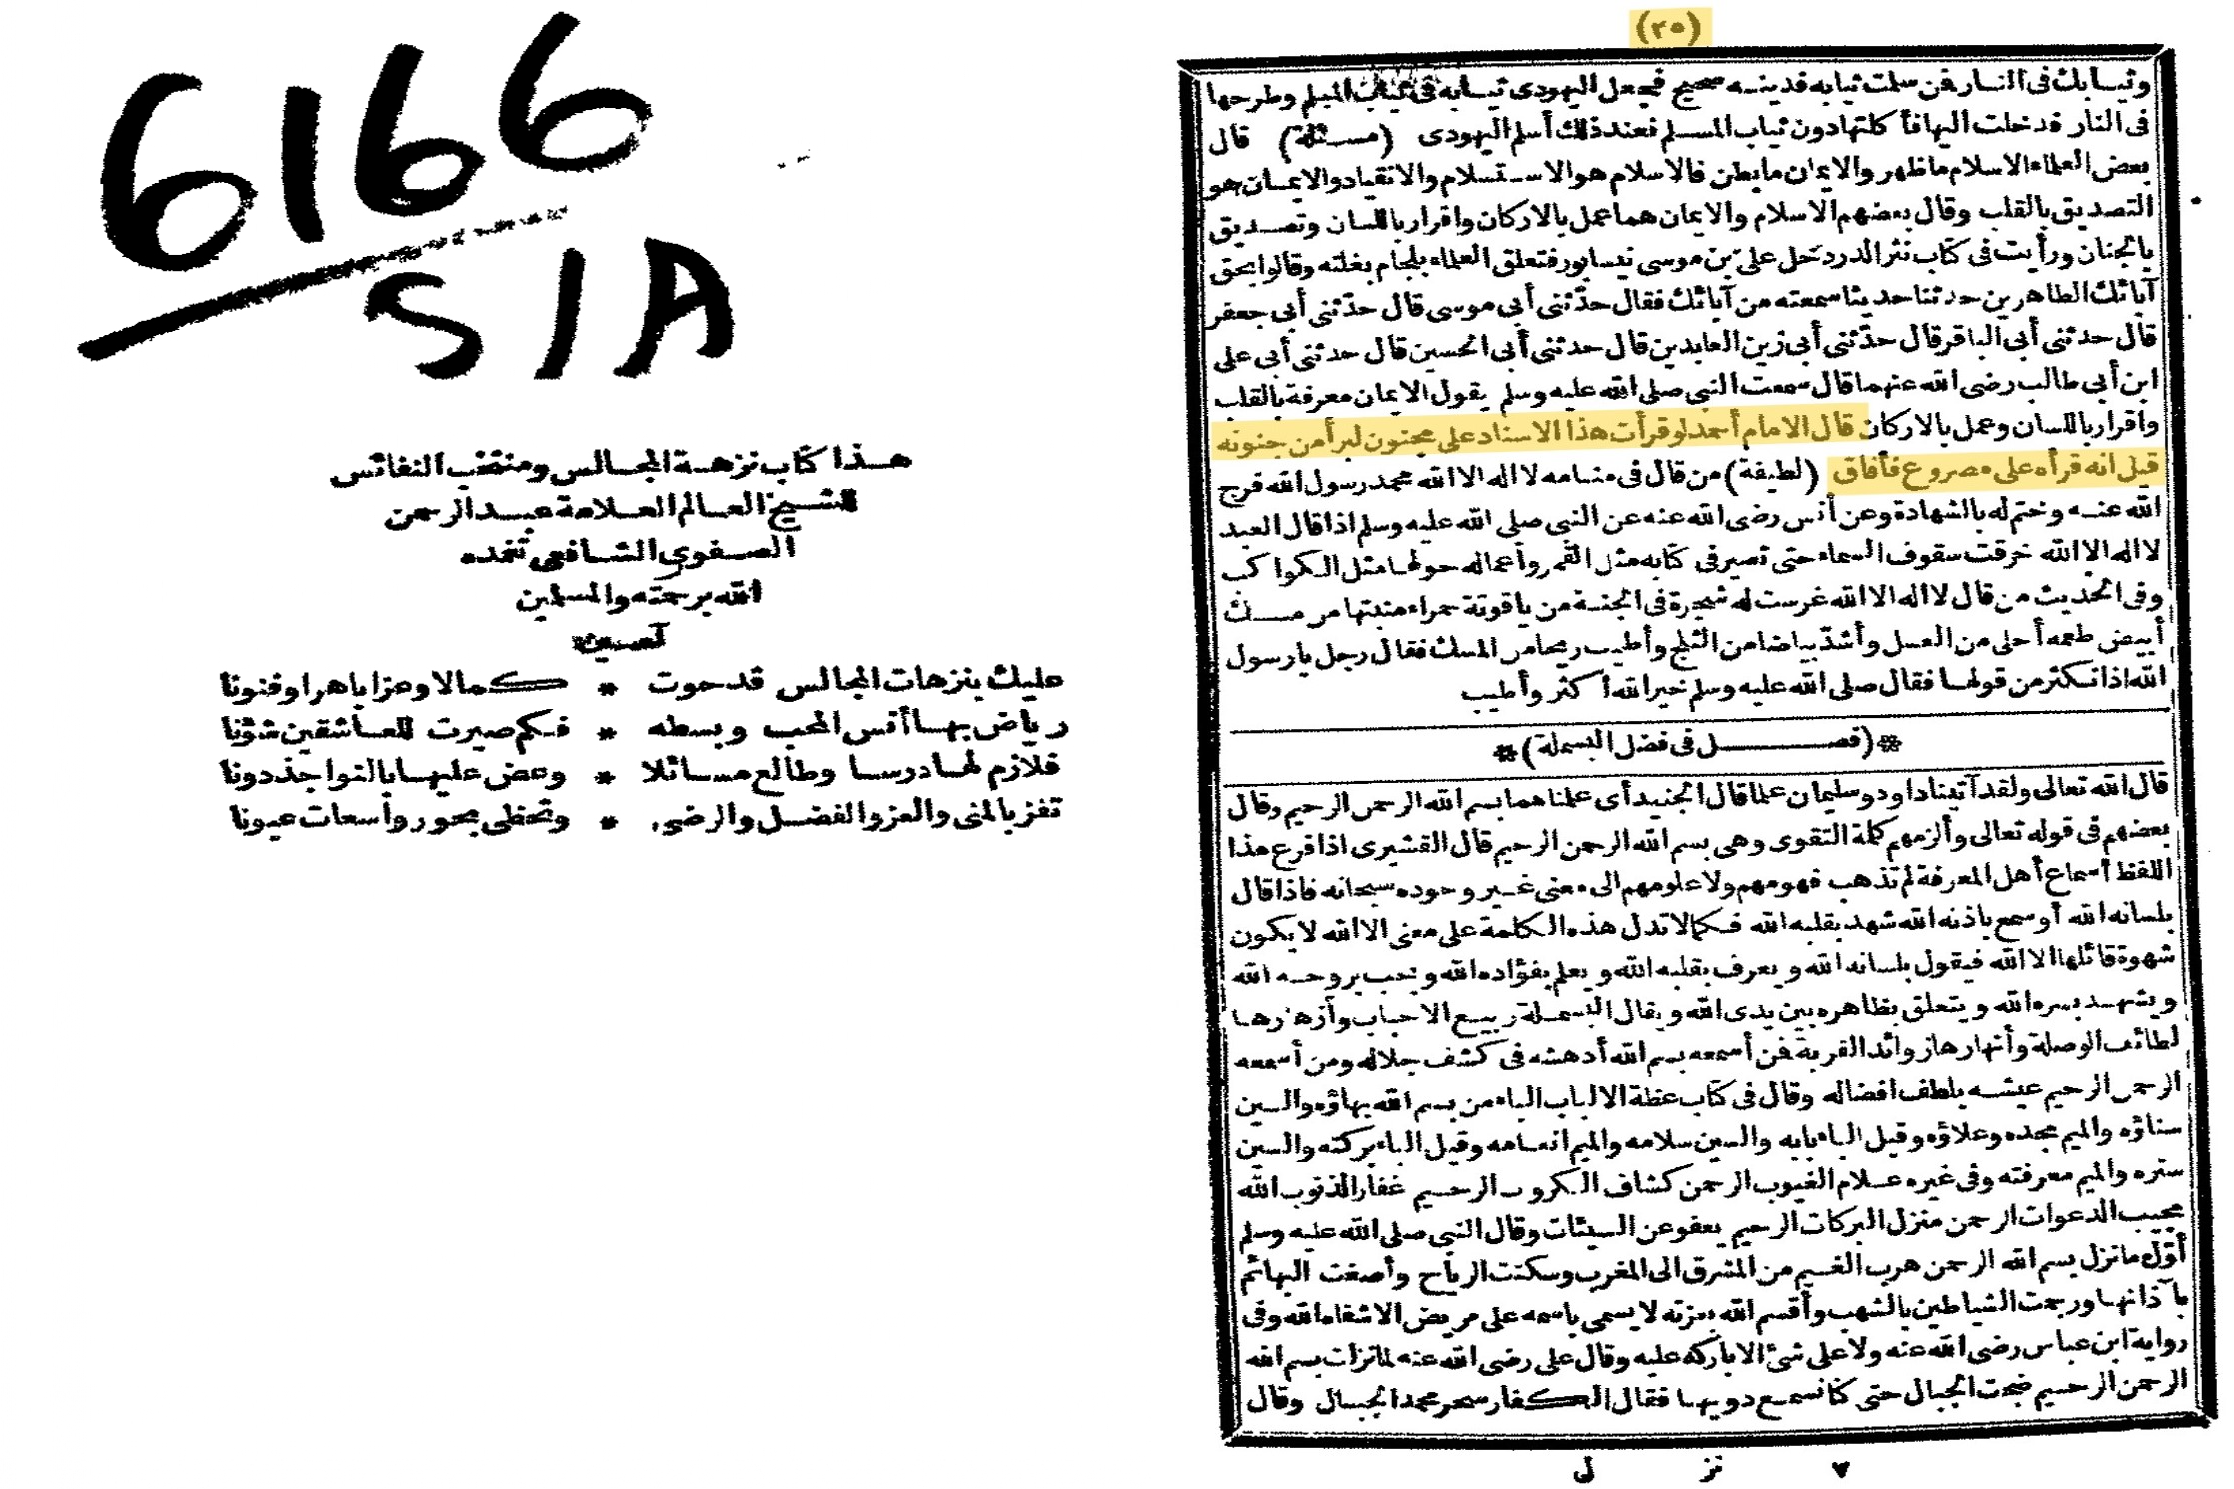 6166
SIA
هذا كتاب نزهة المجالس ومنتخب النفائس
للشيخ العالم العلامة عبد الرحمن
الصفوى الشافعى تغمده
الله برحمته والمسلمين
آمين
عليك بنزهات المجالس قدحوت * كمالا وعزا باهرا وفنونا
رياض بها أنس المحب وبسطه * فكم صيرت للعاشقين شؤنا
فلازم لها درسا وطالع مسائلا * وعض عليها بالنواجذ دونا
تفز بالمنى والعز والفضل والرضى * وتحظى بحور واسعات عيونا
(٢٥)
وثيابك فى النار فمن سلمت ثيابه فدينه صحيح فجعل اليهودى ثيابه فى ثياب المسلم وطرحها
فى النار فدخلت اليها فأكلتها دون ثياب المسلم فعند ذلك أسلم اليهودى (مسئلة) قال
بعض العلماء الاسلام ماظهر والايمان مابطن فالاسلام هو الاستسلام والانقياد والايمان هو
التصديق بالقلب وقال بعضهم الاسلام والايمان هما عمل بالاركان واقرار باللسان وتصديق
بالجنان ورأيت فى كتاب نثر الدرر دخل علىّ بن موسى نيسابور فتعلق العلماء بلجام بغلته وقالوا بحق
آبائك الطاهرين حدثنا حديثا سمعته من آبائك فقال حدّثنى أبى موسى قال حدّثنى أبى جعفر
قال حدثنى أبى الباقر قال حدّثنى أبى زين العابدين قال حدثنى أبى الحسين قال حدثنى أبى على
ابن أبى طالب رضى الله عنهما قال سمعت النبى صلى الله عليه وسلم يقول الايمان معرفة بالقلب
واقرار باللسان وعمل بالاركان قال الامام أحمد لو قرأت هذا الاسناد على مجنون لبرأ من جنونه
قيل انه قرأه على مصروع فأفاق (لطيفة) من قال فى منامه لا اله الا الله محمد رسول الله فرج
الله عنه وختم له بالشهادة وعن أنس رضى الله عنه عن النبى صلى الله عليه وسلم اذا قال العبد
لا اله الا الله خرقت سقوف السماء حتى تصير فى كتابه مثل القمر وأعماله حولها مثل الكواكب
وفى الحديث من قال لا اله الا الله غرست له شجرة فى الجنة من ياقوتة حمراء منبتها من مسك
أبيض طعمه أحلى من العسل وأشدّ بياضا من الثلج وأطيب ريحا من المسك فقال رجل يا رسول
الله اذا نكثر من قولها فقال صلى الله عليه وسلم خير الله أكثر وأطيب
*(فصل فى فضل البسملة)*
قال الله تعالى ولقد آتينا داود وسليمان علما قال الجنيد أى علمناهما بسم الله الرحمن الرحيم وقال
بعضهم فى قوله تعالى وألزمهم كلمة التقوى وهى بسم الله الرحمن الرحيم قال القشيرى اذا قرع هذا
اللفظ أسماع أهل المعرفة لم تذهب فهومهم ولا علومهم الى معنى غير وجوده سبحانه فاذا قال
بلسانه الله أو سمع باذنه الله شهد بقلبه الله فكما لا تدل هذه الكلمة على معنى الا الله لا يكون
شهوة قائلها الا الله فيقول بلسانه الله ويعرف بقلبه الله ويعلم بفؤاده الله ويحب بروحه الله
ويشهد بسره الله ويتعلق بظاهره بين يدى الله ويقال البسملة ربيع الاحباب وأزهارها
لطائف الوصلة وأنهارها زوائد القربة فمن أسمعه بسم الله أدهشه فى كشف جلاله ومن أسمعه
الرحمن الرحيم عيشه بلطف افضاله وقال فى كتاب عظة الالباب الباء من بسم الله بهاؤه والسين
سناؤه والميم مجده وعلاؤه وقيل الباء بابه والسين سلامه والميم انعامه وقيل الباء بركته والسين
ستره والميم معرفته وفى غيره علام الغيوب الرحمن كشاف الكروب الرحيم غفار الذنوب الله
مجيب الدعوات الرحمن منزل البركات الرحيم يعفو عن السيئات وقال النبى صلى الله عليه وسلم
أوّل ما نزل بسم الله الرحمن هرب الغيم من المشرق الى المغرب وسكنت الرياح وأصغت البهائم
بآذانها ورجمت الشياطين بالشهب وأقسم الله بعزته لا يسمى باسمه على مريض الا شفاه الله وفى
رواية ابن عباس رضى الله عنه ولا على شئ الا بارك عليه وقال على رضى الله عنه لما نزلت بسم الله
الرحمن الرحيم ضجت الجبال حتى كنا نسمع دويها فقال الكفار سحر محمد الجبال وقال
٧ نز ل